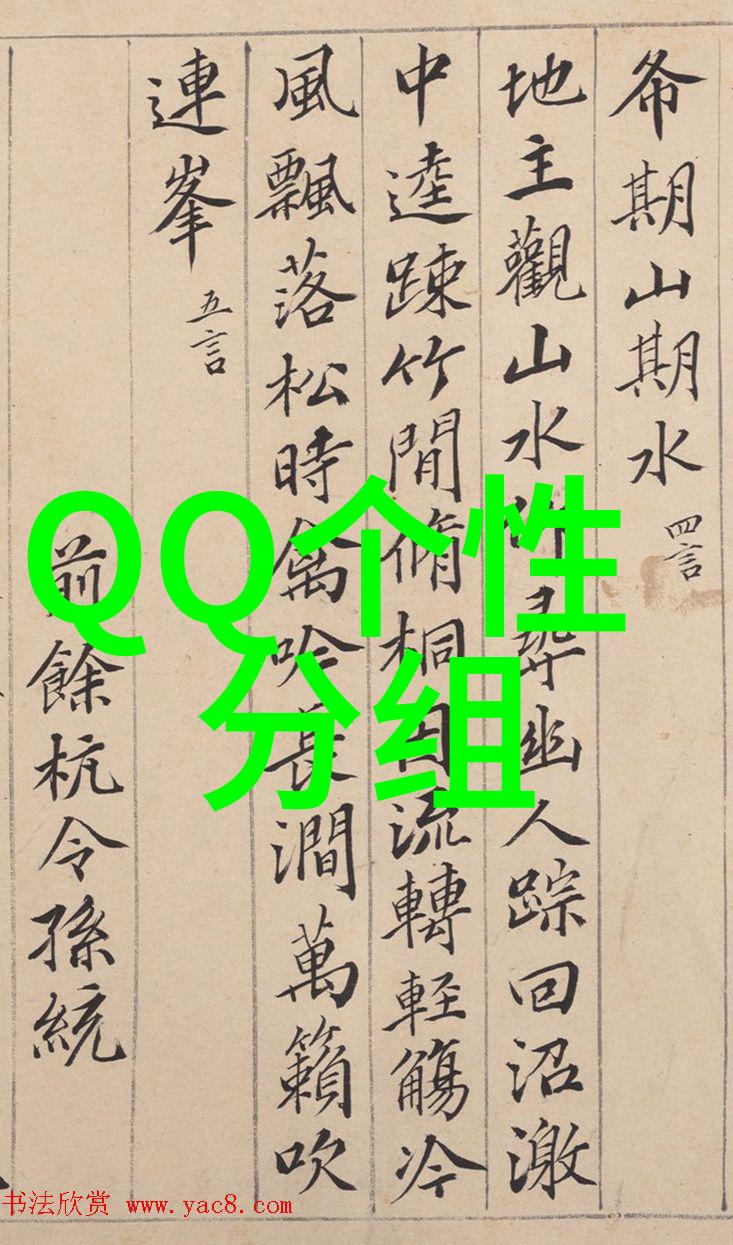 希期山期水 四言
地主觀山水仰尋幽人踪回沼激
中逵踈竹間脩桐因流轉軽觴冷
風飄落松時禽吟長澗萬籟吹
連峯 五言
前餘杭令孫統
QQ个性
分组
书法欣赏 www.yac8.com